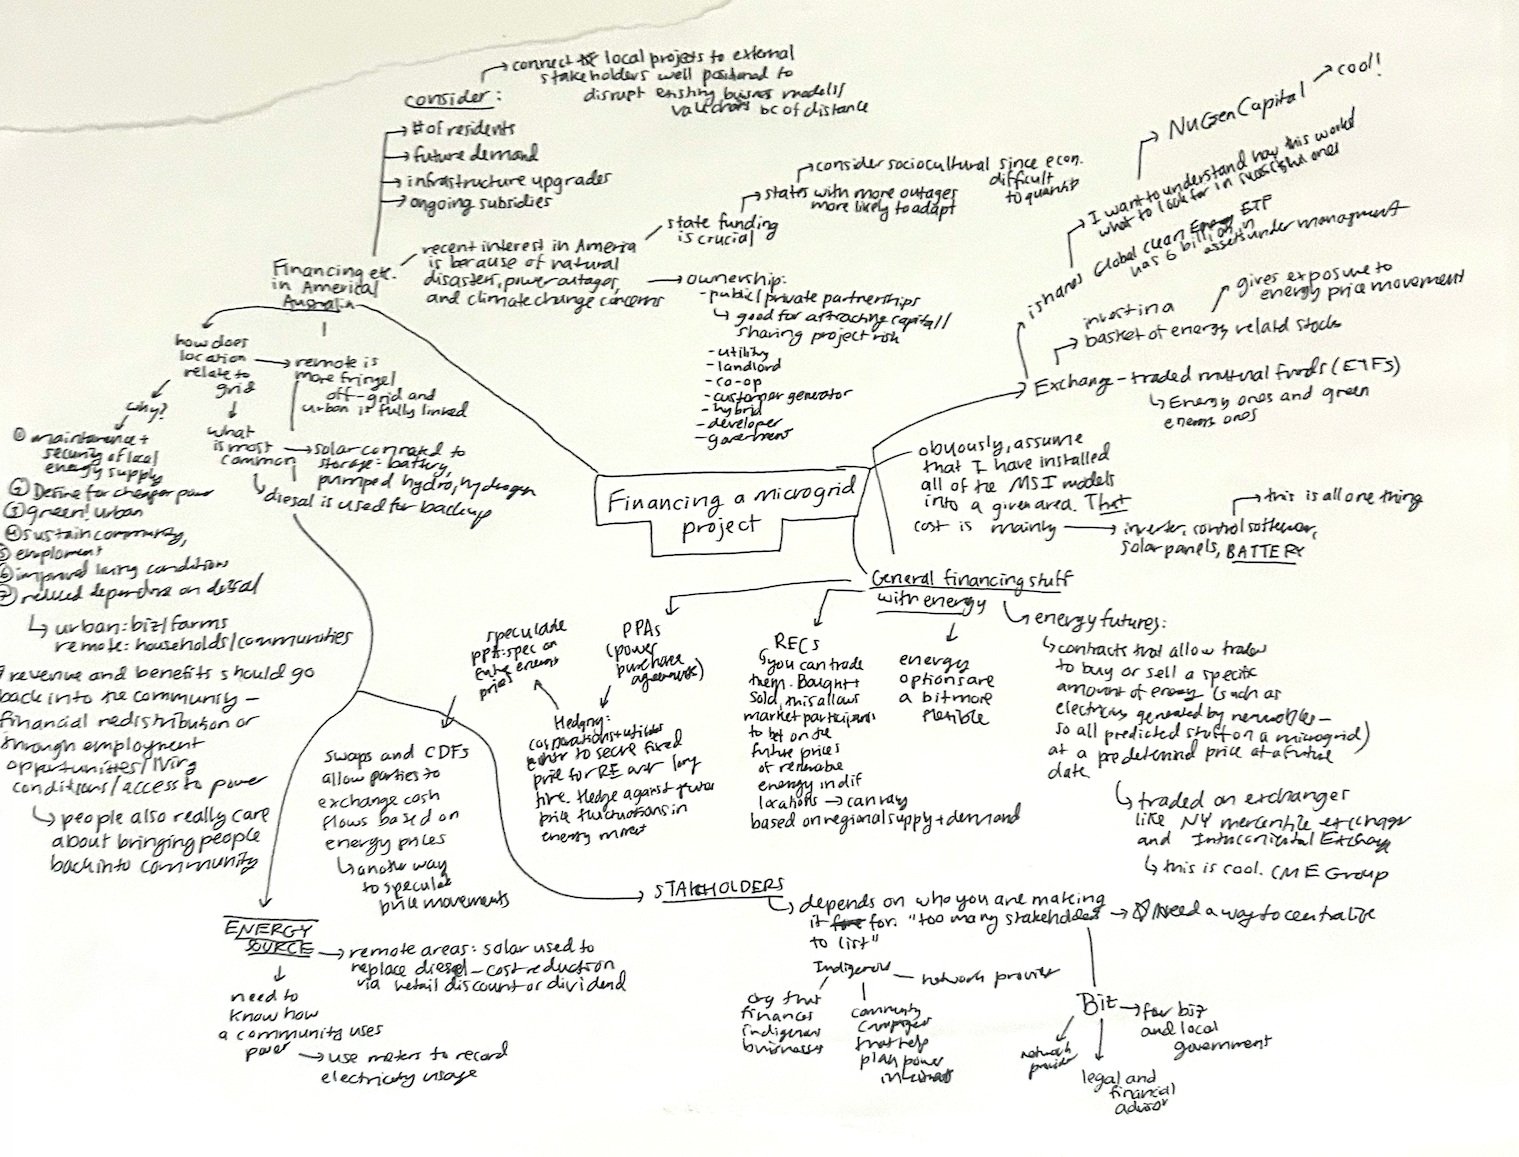 consider:
connect local projects to external
stakeholders well positioned to
disrupt existing business models/
valuchains bc of distance
# of residents
future demand
infrastructure upgrades
ongoing subsidies
Financing etc.
in America/
Australia
recent interest in America
is because of natural
disasters, power outages,
and climate change concerns
state funding
is crucial
states with more outages
more likely to adapt
consider sociocultural since econ.
difficult
to quantify
ownership:
- public/private partnerships
good for attracting capital/
sharing project risk
- utility
- landlord
- co-op
- customer generator
- hybrid
- developer
- government
how does
location
relate to
grid
remote is
more fringe/
off-grid and
urban is fully linked
why?
① maintenance +
security of local
energy supply
② Desire for cheaper power
③ green! urban
④ sustain community,
⑤ employment
⑥ improved living conditions
⑦ reduced dependence on diesal
urban: biz/farms
remote: households/communities
revenue and benefits should go
back into the community –
financial redistribution or
through employment
opportunities/living
conditions/access to power
people also really care
about bringing people
back into community
what
is most
common
solar connected to
storage: battery,
pumped hydro, hydrogen
diesal is used for backup
Financing a microgrid
project
NuGen Capital
cool!
I want to understand how this works/
what to look for in successful ones
ishares Global Clean Energy ETF
has 6 billion in
assets under managment
invest in a
basket of energy related stocks
gives exposure to
energy price movement
Exchange-traded mutual funds (ETFs)
Energy ones and green
energy ones
obviously, assume
that I have installed
all of the MSI models
into a given area. That
cost is mainly
inverter, control software,
solar panels, BATTERY
this is all one thing
General financing stuff
with energy
speculate
ppas: spec on
future energy
prices
PPAs
(power
purchase
agreements)
Hedging:
corporations + utilities
enter to secure fixed
price for RE over long
time. Hedge against future
price fluctuations in
energy market
swaps and CDFs
allow parties to
exchange cash
flows based on
energy prices
another way
to speculate
price movements
RECS
you can trade
them. Bought +
sold, this allows
market participants
to bet on the
future prices
of renewable
energy in dif
locations → can vary
based on regional supply + demand
energy
options are
a bit more
flexible
energy futures:
contracts that allow traders
to buy or sell a specific
amount of energy (such as
electricity generated by renewables –
so all predicted stuff on a microgrid)
at a predetermined price at a future
date
traded on exchanges
like NY mercantile exchange
and Intercontinental Exchange
this is cool. CME Group
STAKEHOLDERS
depends on who you are making
it for: "too many stakeholders
to list"
Need a way to centralize
Indigenous
network provider
org that
finances
indigenous
businesses
community
campaigns
that help
plan power
Biz
for biz
and local
government
network
provider
legal and
financial
advisor
ENERGY
SOURCE
remote areas: solar used to
replace diesel – cost reduction
via retail discount or dividend
need to
know how
a community uses
power
use meters to record
electricity usage